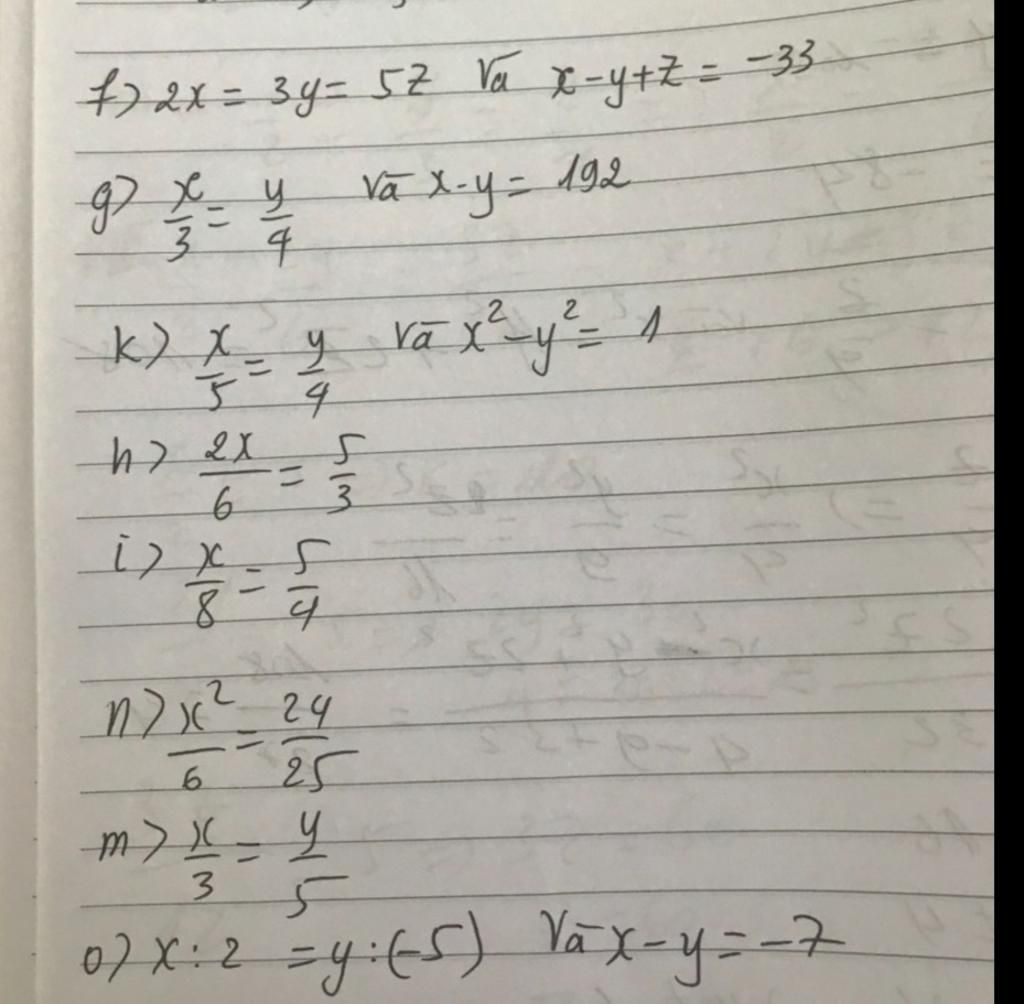 f) 2x = 3y = 5Z và x-y+Z = -33
g) x/3 = y/4 và x-y = 192
k) x/5 = y/4 và x²-y² = 1
h) 2x/6 = 5/3
i) x/8 = 5/4
n) x²/6 = 24/25
m) x/3 = y/5
o) x : 2 = y : (-5) và x - y = -7